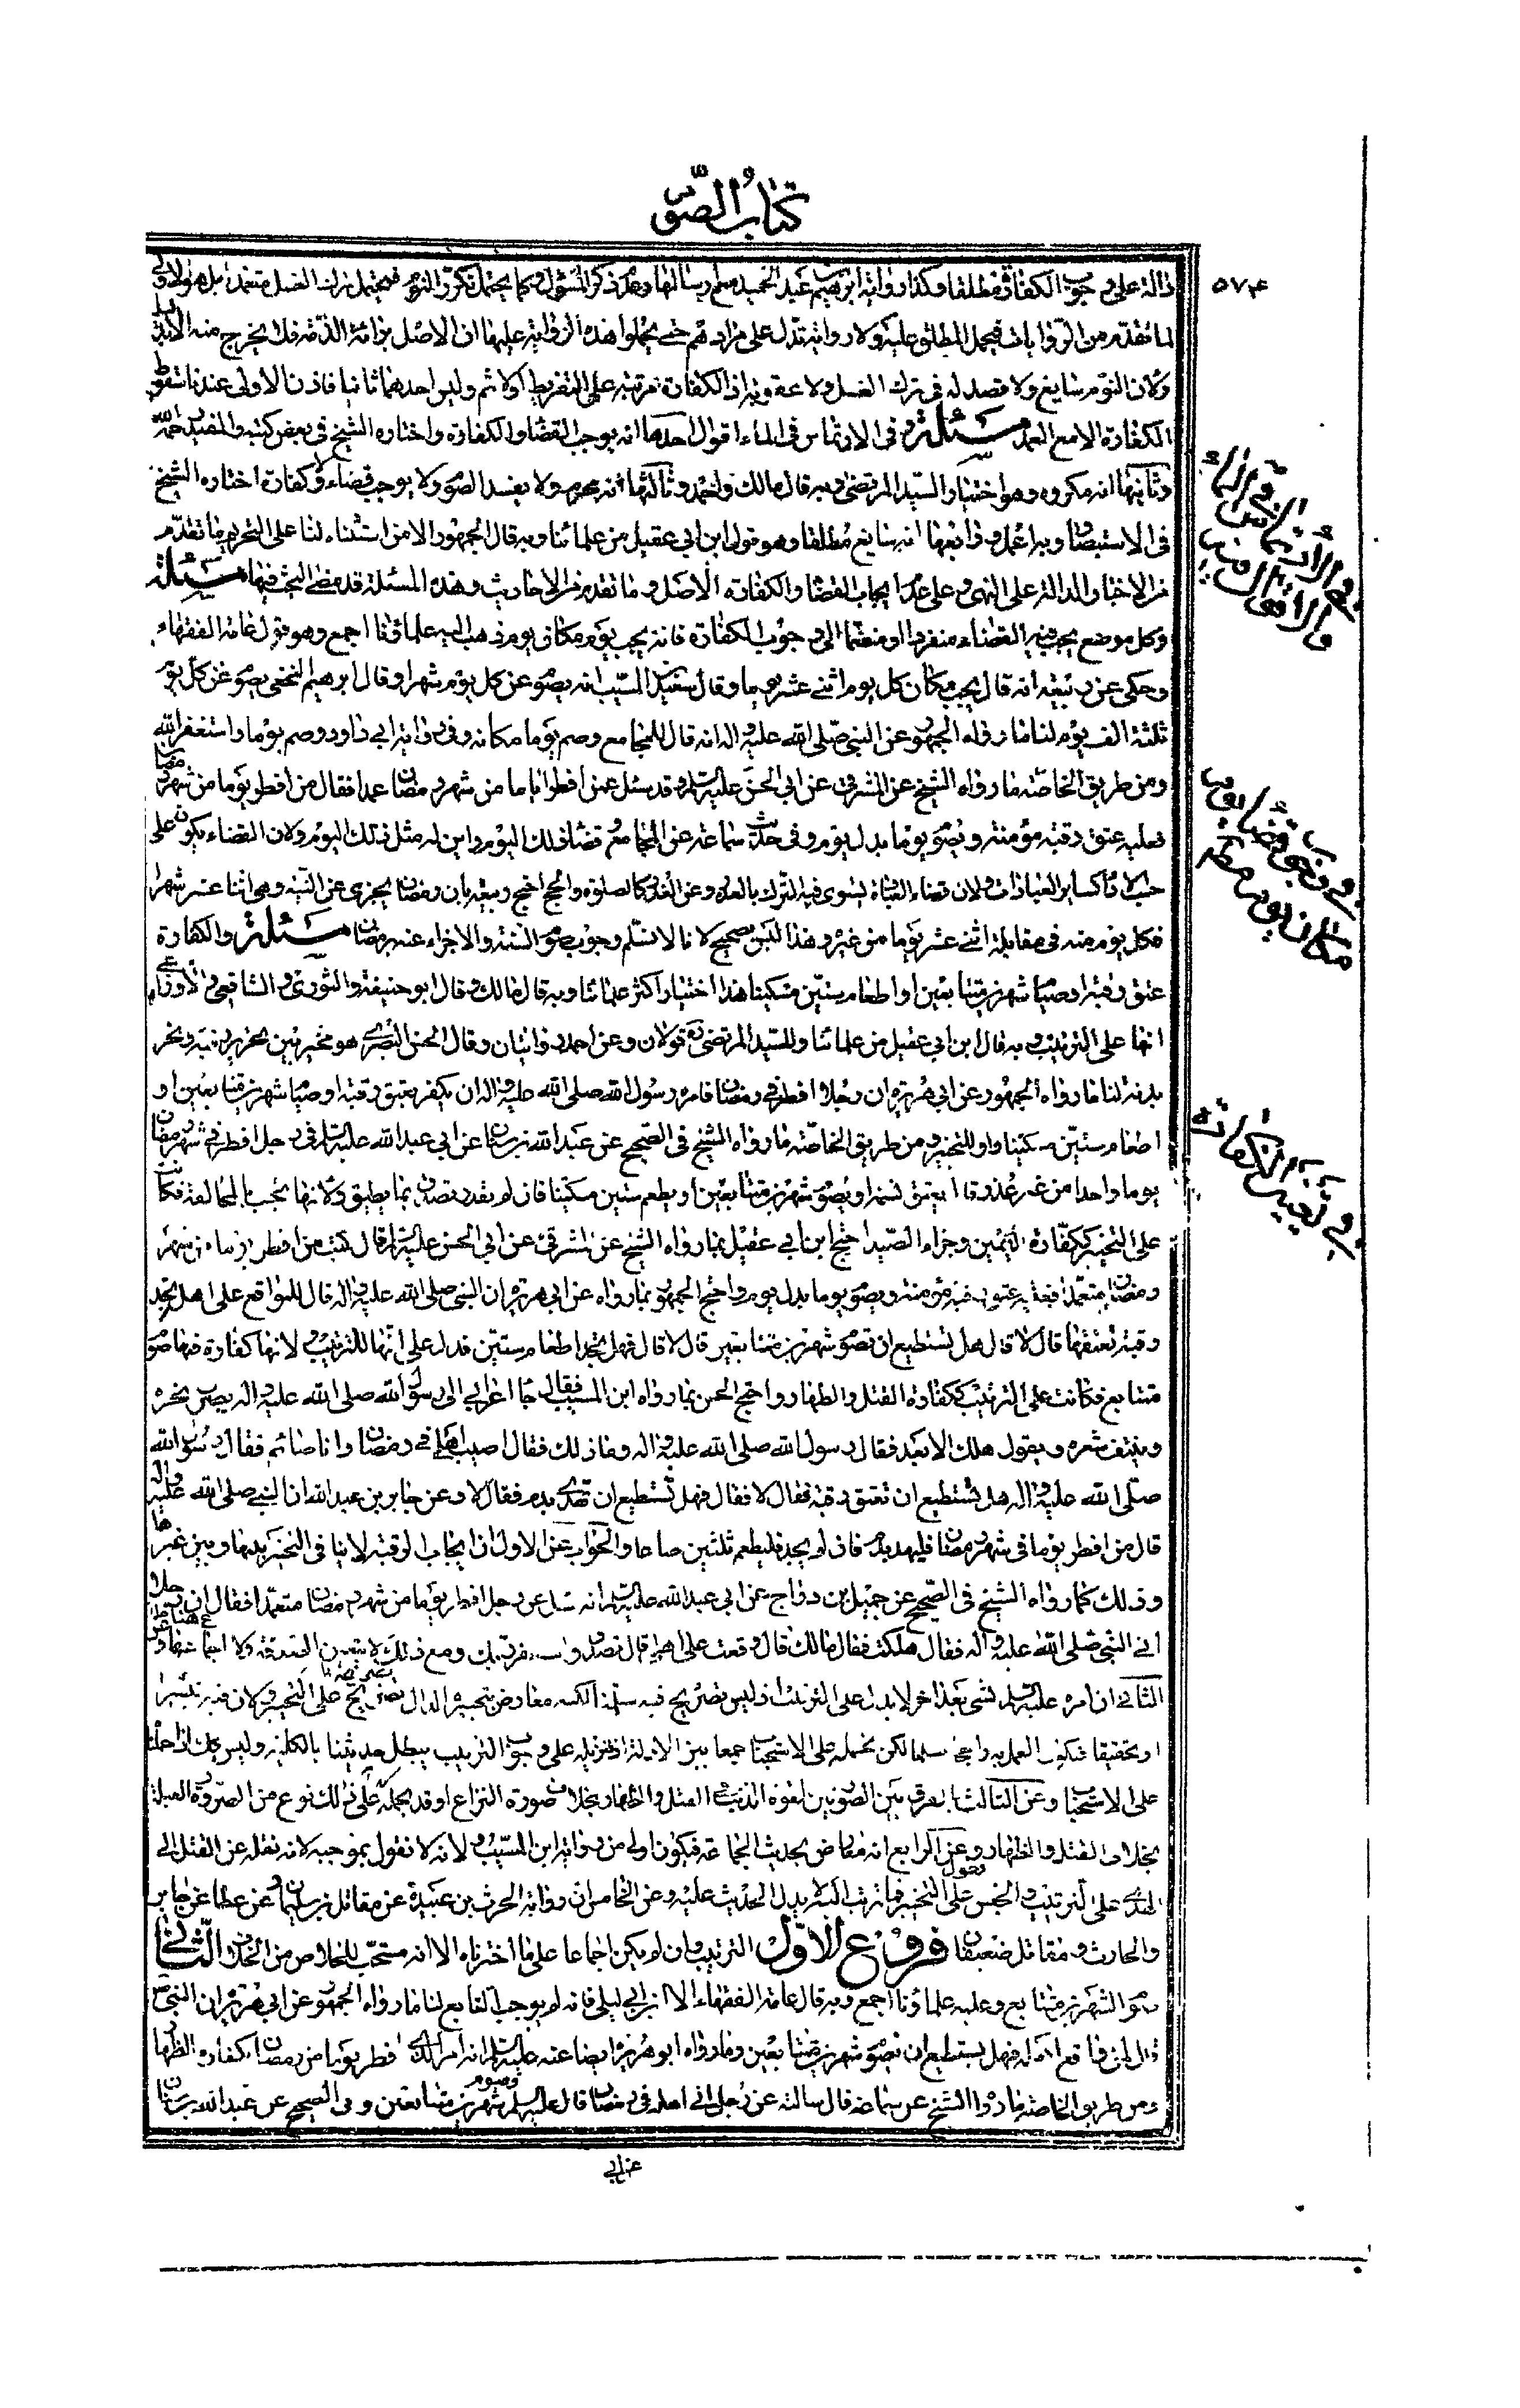 كتاب الصوم
٥٧٤
دالة على وجوب الكفارة مطلقا وكذا رواية ابرهيم بن عبد الحميد مع ارسالها وهكذا ذكر النوم فيحتمل ترك الغسل متعمدا بل هو الاولى
لما تقدم من الروايات فيحمل المطلق عليه ولا رواية تدل على مرادهم حتى يحملوا هذه الرواية عليها ان الاصل برائة الذمة فلا يخرج منه الا بدليل
ولان النوم سايغ ولا قصد له في ترك الغسل ولا عقوبة اذ الكفارة مرتبة على التفريط او الاثم وليس احدهما ثابتا فاذن الاولى عندنا سقوط
الكفارة الا مع العمد مسئلة في الارتماس في الماء اقوال احدها انه يوجب القضاء والكفارة واختاره الشيخ في بعض كتبه والمفيد رحمه الله
وثانيها انه مكروه وهو اختيار السيد المرتضى وبه قال مالك واحمد وثالثها انه محرم ولا يفسد الصوم ولا يوجب قضاء ولا كفارة اختاره الشيخ
في الاستبصار وبه اعمل ورابعها انه سايغ مطلقا وهو قول ابن ابي عقيل من علمائنا وبه قال الجمهور الا من استثناء لنا على التحريم ما تقدم
من الاخبار الدالة على النهي وعلى عدم ايجاب القضاء والكفارة الاصل وما تقدم من الاحاديث وهذه المسئلة قد مضى البحث فيها مسئلة
وكل موضع يجب فيه القضاء منفردا او منضما الى وجوب الكفارة فانه يجب يوم مكان يوم ذهب اليه علماؤنا اجمع وهو قول عامة الفقهاء
وحكى عن ربيعة انه قال يجب مكان كل يوم اثنى عشر يوما وقال سعيد بن المسيب انه يصوم عن كل يوم شهرا وقال ابرهيم النخعي يصوم عن كل يوم
ثلثة الف يوم لنا ما رواه الجمهور عن النبي صلى الله عليه واله انه قال للمجامع وصم يوما مكانه وفي رواية ابي داود وصم يوما واستغفر الله
ومن طريق الخاصة ما رواه الشيخ عن المشرقي عن ابي الحسن عليه السلم وقد سئل عمن افطر اياما من شهر رمضان عمدا فقال من افطر يوما من شهر رمضان
فعليه عتق رقبة مؤمنة ويصوم يوما بدل يوم وفي حديث سماعة عن المجامع قضاء ذلك اليوم واين له مثل ذلك اليوم ولان القضاء يكون على
حسب الاداء كساير العبادات ولان قضاء العبادة يستوي فيه الترك بالعذر وعن الغير كالصلوة والحج احتج ربيعة بان رمضان يجزي عن السنة وهي اثنا عشر شهرا
فكل يوم منه في مقابلة اثنى عشر يوما من غيره وهذا ليس بصحيح لانا لا نسلم وجوب صوم السنة والاجزاء عنه برمضان مسئلة والكفارة
عتق رقبة او صيام شهرين متتابعين او اطعام ستين مسكينا هذا اختيار اكثر علمائنا وبه قال مالك وقال ابو حنيفة والثوري والشافعي والاوزاعي
انها على الترتيب وبه قال ابن ابي عقيل من علمائنا وللسيد المرتضى ره قولان وعن احمد روايتان وقال الحسن البصري هو مخير بين تحرير رقبة ونحر
بدنة لنا ما رواه الجمهور عن ابي هريرة ان رجلا افطر في رمضان فامره رسول الله صلى الله عليه واله ان يكفر بعتق رقبة او صيام شهرين متتابعين او
اطعام ستين مسكينا واو للتخيير ومن طريق الخاصة ما رواه الشيخ في الصحيح عن عبد الله بن سنان عن ابي عبد الله عليه السلم في رجل افطر في شهر رمضان
يوما واحدا من غير عذر قال يعتق نسمة او يصوم شهرين متتابعين او يطعم ستين مسكينا فان لم يقدر تصدق بما يطيق ولانها تجب بالمخالفة فكانت
على التخيير ككفارة اليمين وجزاء الصيد احتج ابن ابي عقيل بما رواه الشيخ عن المشرقي عن ابي الحسن عليه السلم قال كتب من افطر يوما من شهر
رمضان متعمدا فعليه عتق رقبة مؤمنة ويصوم يوما بدل يوم واحتج الجمهور بما رواه عن ابي هريرة ان النبي صلى الله عليه واله قال للواقع على اهله هل تجد
رقبة تعتقها قال لا قال هل تستطيع ان تصوم شهرين متتابعين قال لا قال فهل تجد اطعام ستين فدل على انها للترتيب ولانها كفارة فيها صوم
متتابع فكانت على الترتيب ككفارة القتل والظهار واحتج الحسن بما رواه ابن المسيب فقال جاء اعرابي الى رسول الله صلى الله عليه واله يضرب نحره
وينتف شعره ويقول هلك الابعد فقال رسول الله صلى الله عليه واله وما ذلك فقال اصبت اهلي في رمضان وانا صائم فقال رسول الله
صلى الله عليه واله هل تستطيع ان تعتق رقبة فقال لا فقال فهل تستطيع ان تهدي بدنة فقال لا وعن جابر بن عبد الله ان النبي صلى الله عليه واله
قال من افطر يوما في شهر رمضان فليهد بدنة فان لم يجد فليطعم ثلثين صاعا والجواب عن الاول ان ايجاب الرقبة لا ينافي التخيير بينها وبين غيرها
وذلك كما رواه الشيخ في الصحيح عن جميل بن دراج عن ابي عبد الله عليه السلم انه سئل عن رجل افطر يوما من شهر رمضان متعمدا فقال ان رجلا
اتى النبي صلى الله عليه واله فقال هلكت فقال مالك قال وقعت على اهلي قال تصدق واستغفر ربك ومع ذلك لا يتعين الصدقة
الثاني ان امره عليه السلم بشيء بعد اخر لا يدل على الترتيب اذ ليس بصريح فيه سلمنا لكنه معارض بتخييره الدال بصريحه على التخيير ولان فيه تيسيرا
او تخفيفا فيكون العمل به راجحا سلمنا لكن نحمله على الاستحباب جمعا بين الادلة اذ تنزيله على وجوب الترتيب يبطل حديثنا بالكلية وليس كذلك اذا حملنا
على الاستحباب وعن الثالث بالفرق بين الصورتين لقوة الذنب في القتل والظهار بخلاف صورة النزاع
بخلاف القتل والظهار وعن الرابع انه معارض بحديث الجماعة فيكون اولى من رواية ابن المسيب ولانه لا نقول بموجبه لانه نقله عن القتل الى
الهدي على الترتيب والحسن يقول على التخيير فما ذهب اليه لا يدل الحديث عليه وعن الخامس ان رواية الحرث بن عبيدة عن مقاتل بن سليمان عن عطا عن جابر
والحارث ومقاتل ضعيفان فروع الاول الترتيب وان لم يكن اجماعا على ما اخترناه الا انه مستحب للخلاص من الخلاف الثاني
صوم الشهرين متتابع وعليه علماؤنا اجمع وبه قال عامة الفقهاء الا ابن ابي ليلى فانه لم يوجب التتابع لنا ما رواه الجمهور عن ابي هريرة ان النبي ص
قال لمن واقع اهله فهل يستطيع ان تصوم شهرين متتابعين وما رواه ابو هريرة ايضا عنه عليه السلم انه امر الذي افطر يوما من رمضان بكفارة الظهار
ومن طريق الخاصة ما رواه الشيخ عن سماعة قال سالته عن رجل اتى اهله في رمضان قال عليه السلم وصوم شهرين متتابعين وفي الصحيح عن عبد الله بن سنان
عن ابي
في الارتماس في الماء
والاقوال فيه
في وجوب قضاء يوم
مكان يوم
في تعيين الكفارة